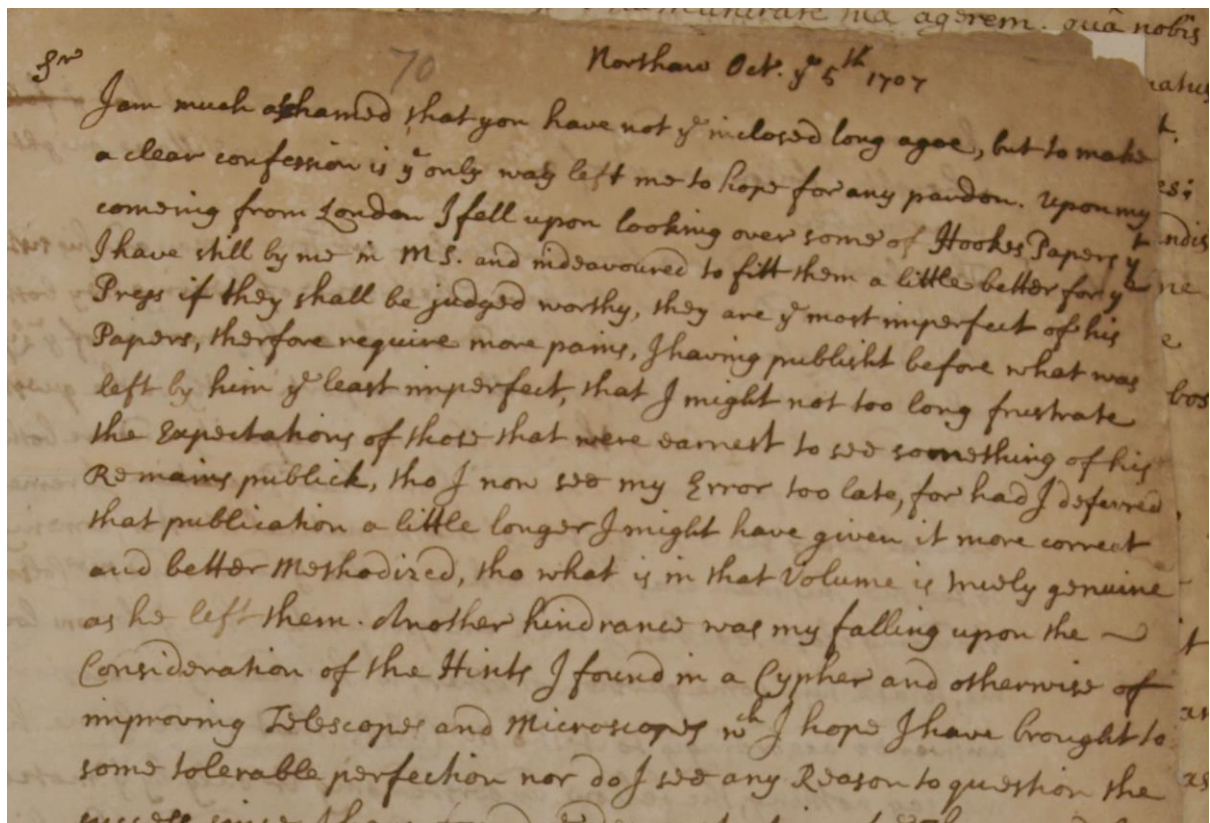 humanitate tua agerem. quā nobis
70
Northaw Oct. yᵉ 5ᵗʰ 1707
Sʳ
I am much ashamed that you have not yᵉ inclosed long agoe, but to make
a clear confession is yᵉ only way left me to hope for any pardon. Upon my
comeing from London I fell upon looking over some of Hookes Papers yᵗ
I have still by me in MS. and indeavoured to fitt them a little better for yᵉ
Press if they shall be judged worthy, they are yᵉ most imperfect of his
Papers, therfore require more pains, I having publisht before what was
left by him yᵉ least imperfect, that I might not too long frustrate
the Expectations of those that were earnest to see something of his
Remains publick, tho I now see my Error too late, for had I deferred
that publication a little longer I might have given it more correct
and better Methodized, tho what is in that Volume is truely genuine
as he left them. Another hindrance was my falling upon the
Consideration of the Hints I found in a Cypher and otherwise of
improving Telescopes and Microscopes wᶜʰ I hope I have brought to
some tolerable perfection nor do I see any Reason to question the